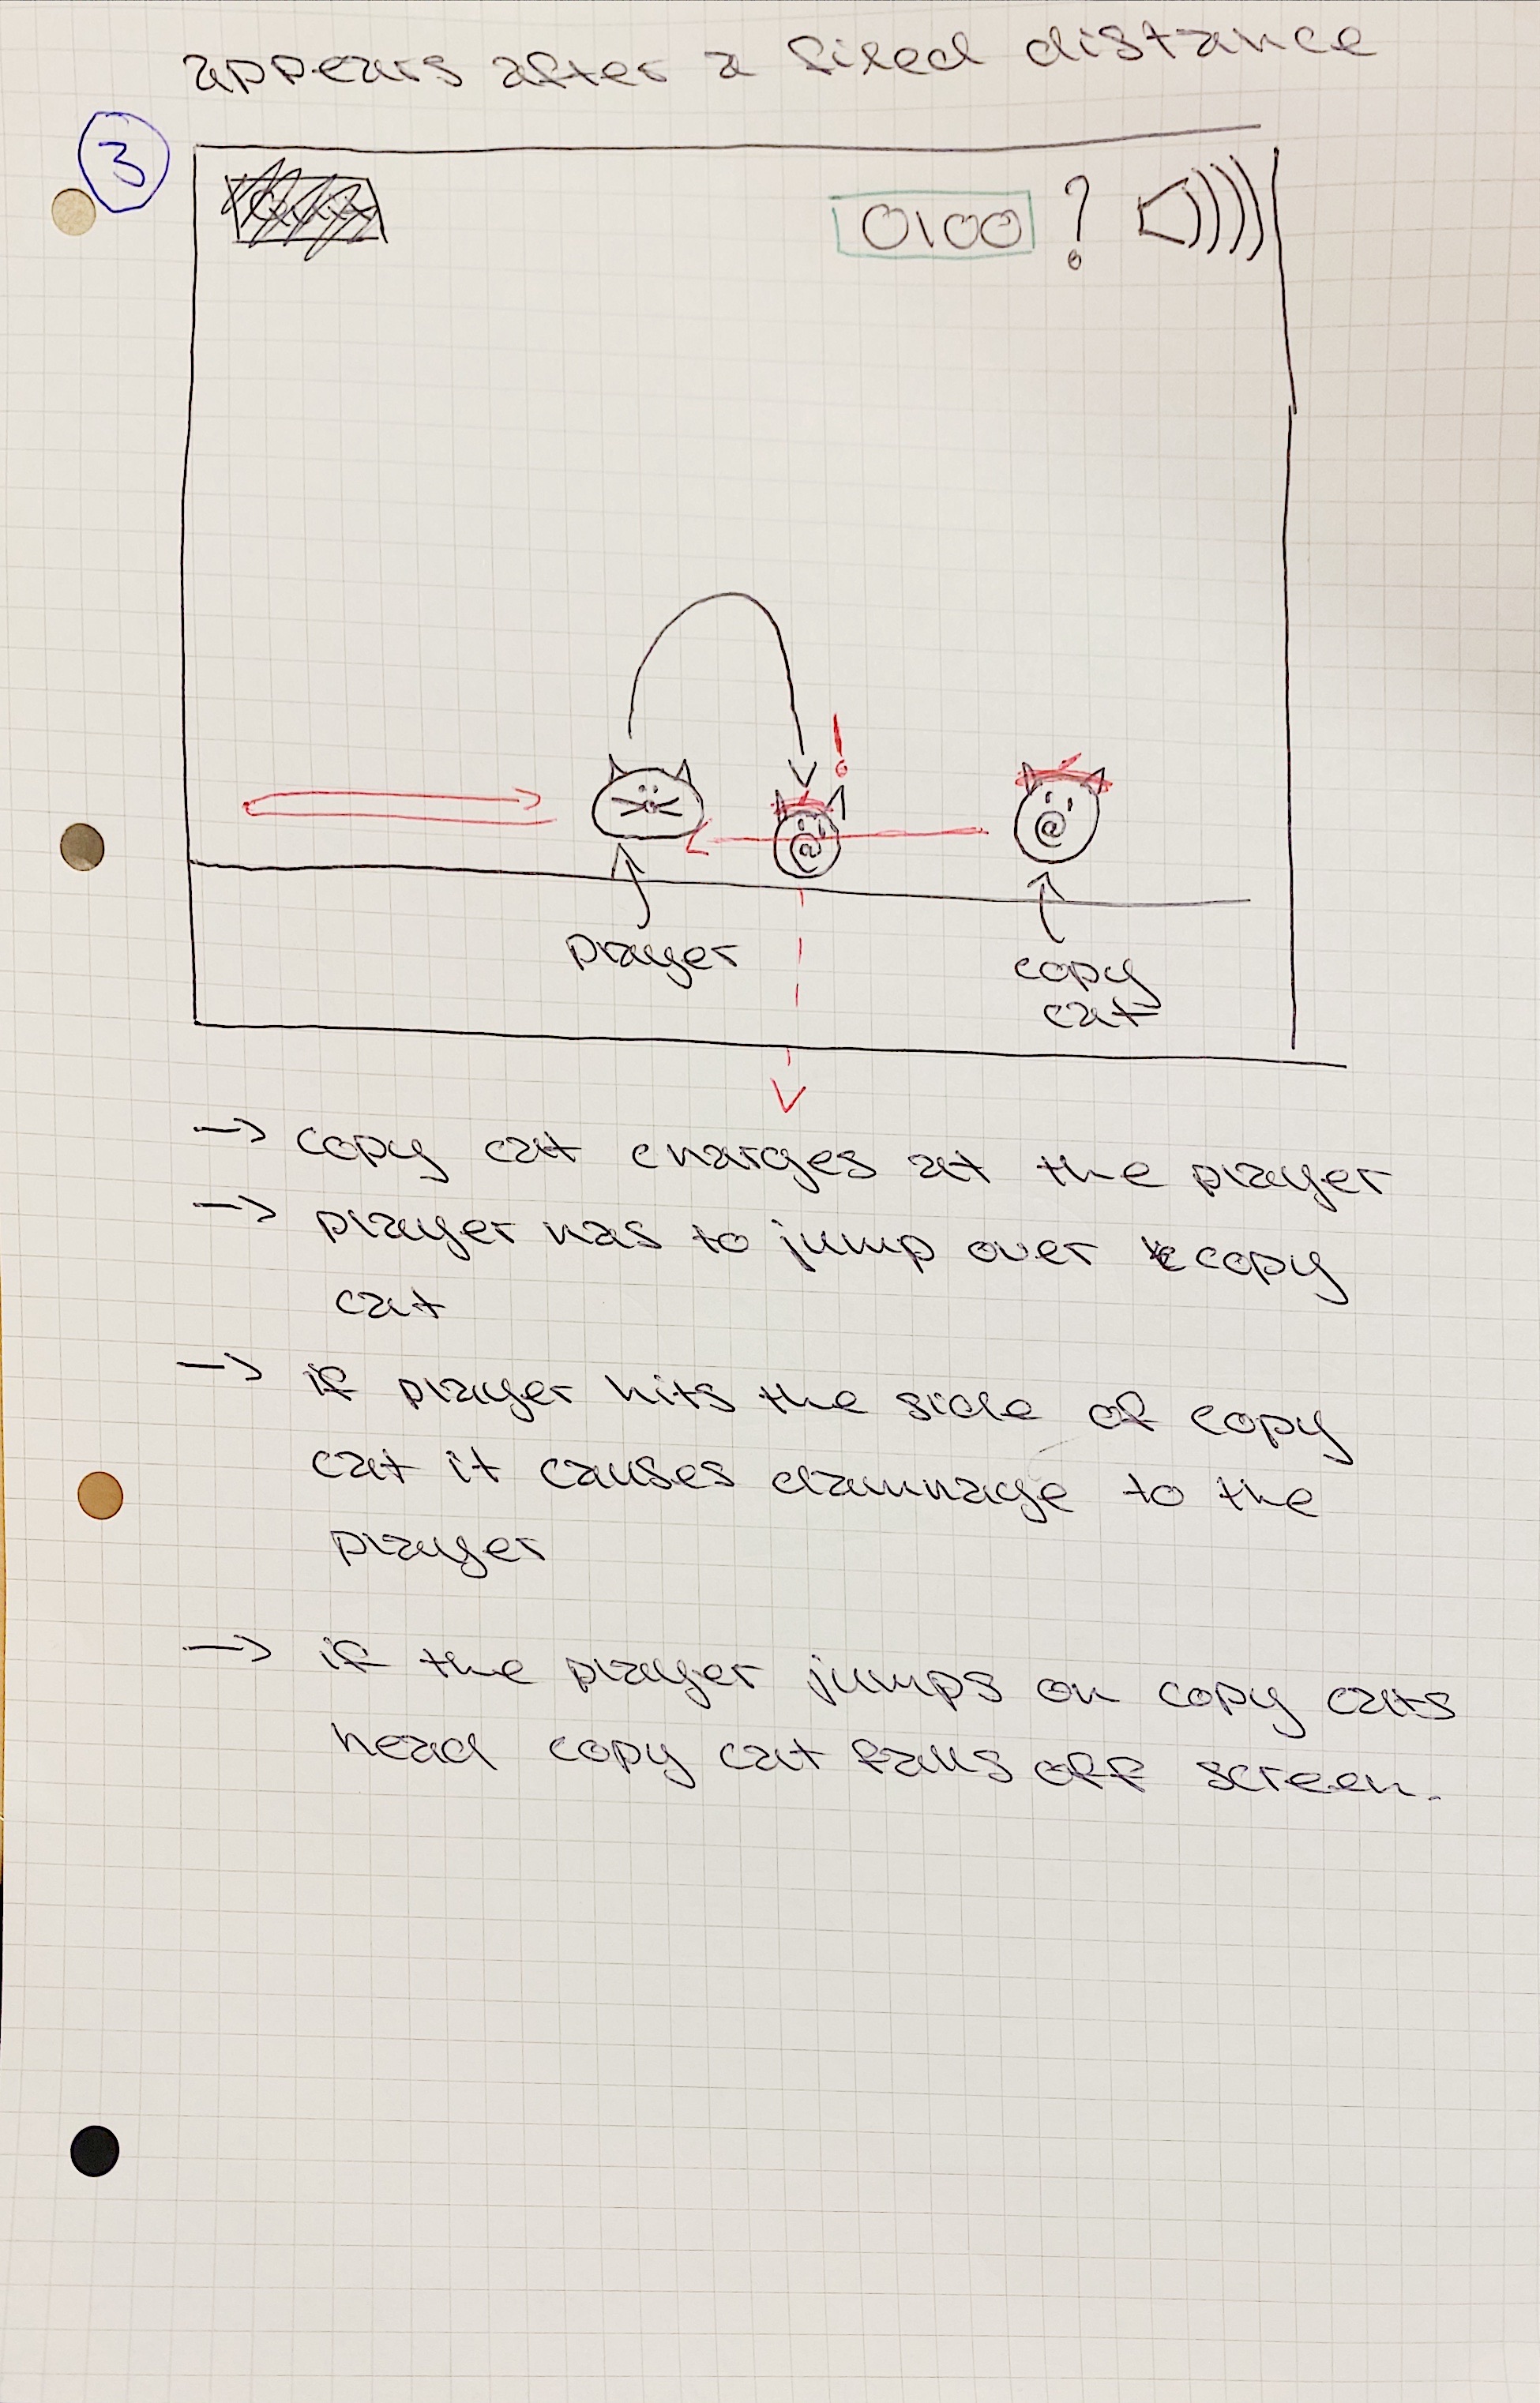 appears after a fixed distance
3
0100 ?
!
player
copy
cat
-> copy cat charges at the player
-> player has to jump over copy
cat
-> if player hits the side of copy
cat it causes dammage to the
player
-> if the player jumps on copy cats
head copy cat falls off screen.